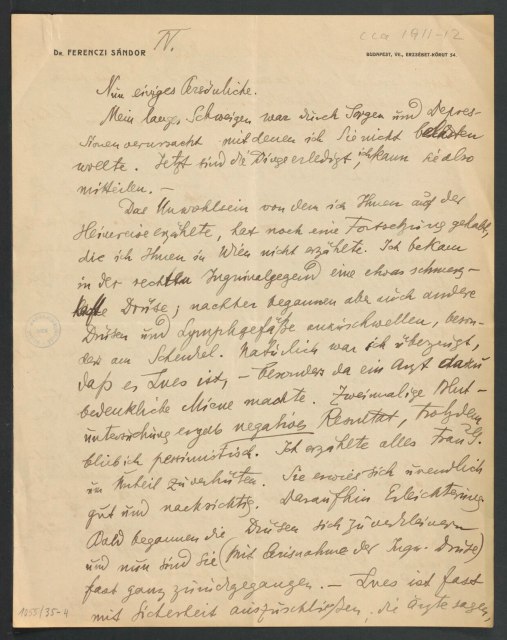 Dr. FERENCZI SÁNDOR
IV.
cca 1911-12
BUDAPEST, VII., ERZSÉBET-KÖRUT 54.
Nun einiges Persönliche.
Mein langes Schweigen war durch Sorgen und Depres-
sionen verursacht mit denen ich Sie nicht belasten
wollte. Jetzt sind die Dinge erledigt, ich kann sie also
mitteilen. —
Das Unwohlsein von dem ich Ihnen auf der
Heimreise erzählte, hat noch eine Fortsetzung gehabt,
die ich Ihnen in Wien nicht erzählte. Ich bekam
in der rechten Inguinalgegend eine etwas schmerz-
hafte Drüse; nachher begannen aber auch andere
Drüsen und Lymphgefäße anzuschwellen, beson-
ders am Schenkel. Natürlich war ich überzeugt,
daß es Lues ist, — besonders da ein Arzt dazu
bedenkliche Miene machte. Zweimalige Blut-
untersuchung ergab negatives Resultat, trotzdem
blieb ich pessimistisch. Ich erzählte alles Frau G.
um Unheil zu verhüten. Sie erwies sich unendlich
gut und nachsichtig. Daraufhin Erleichterung
Bald begannen die Drüsen sich zu verkleinern
und nun sind sie (mit Ausnahme der Ingu. Drüse)
fast ganz zurückgegangen. — Lues ist fast
mit Sicherheit auszuschließen, die Ärzte sagen,
1055/35-4